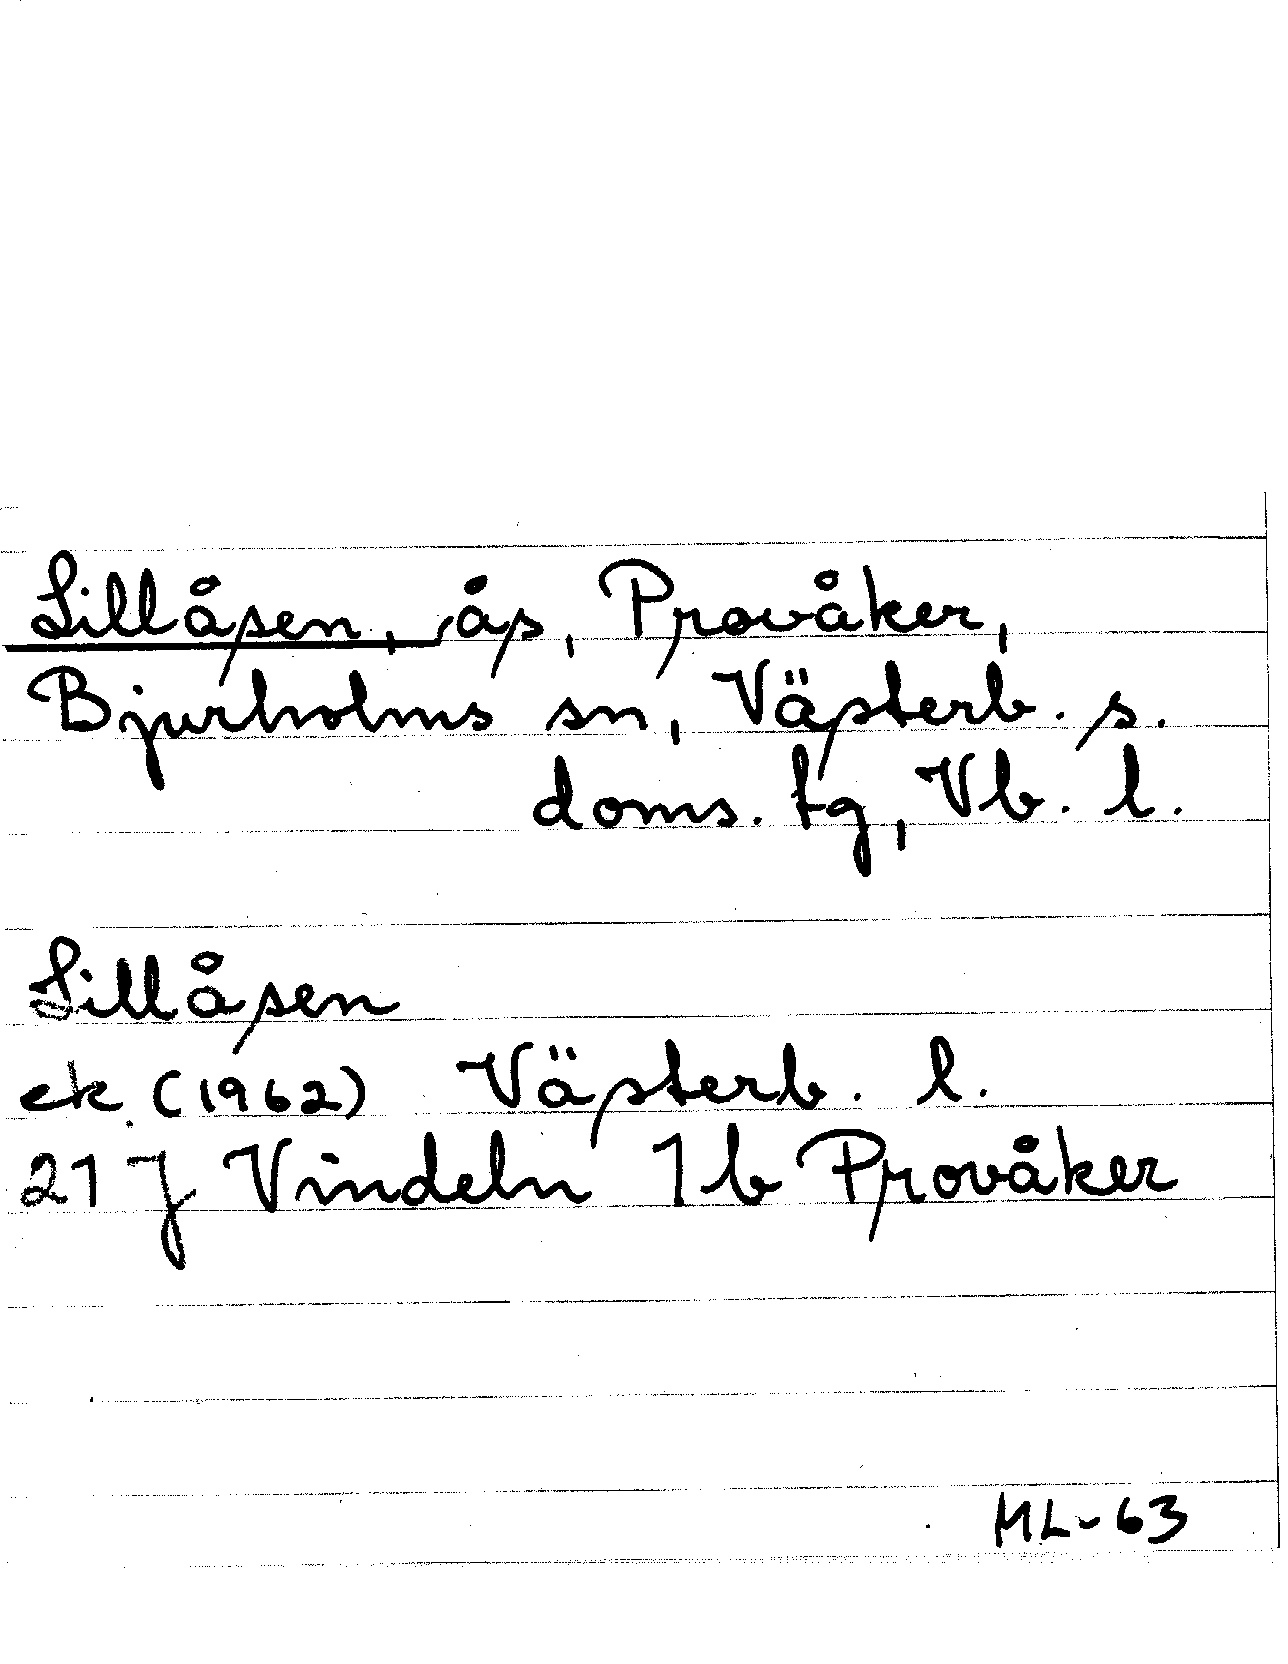 Lillåsen, ås, Provåker,
Bjurholms sn, Västerb. s.
doms. tg, Vb. l.
Lillåsen
ek (1962) Västerb. l.
21 J Vindeln 1b Provåker
ML-63